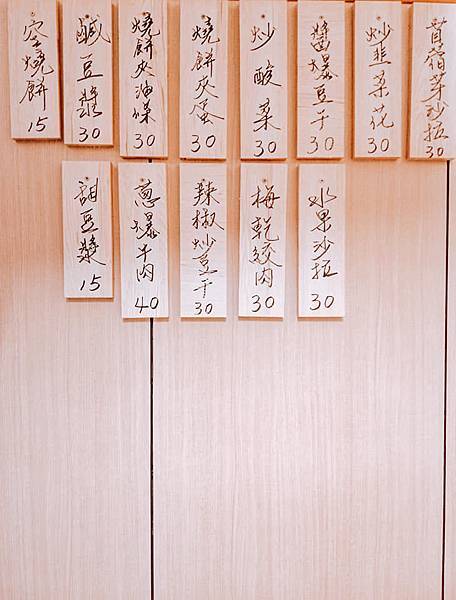 空燒餅 15
鹹豆漿 30
燒餅夾油條 30
燒餅夾蛋 30
炒酸菜 30
醬爆豆干 30
炒韭菜花 30
苜蓿芽沙拉 30
甜豆漿 15
蔥爆牛肉 40
辣椒炒豆干 30
梅乾絞肉 30
水果沙拉 30